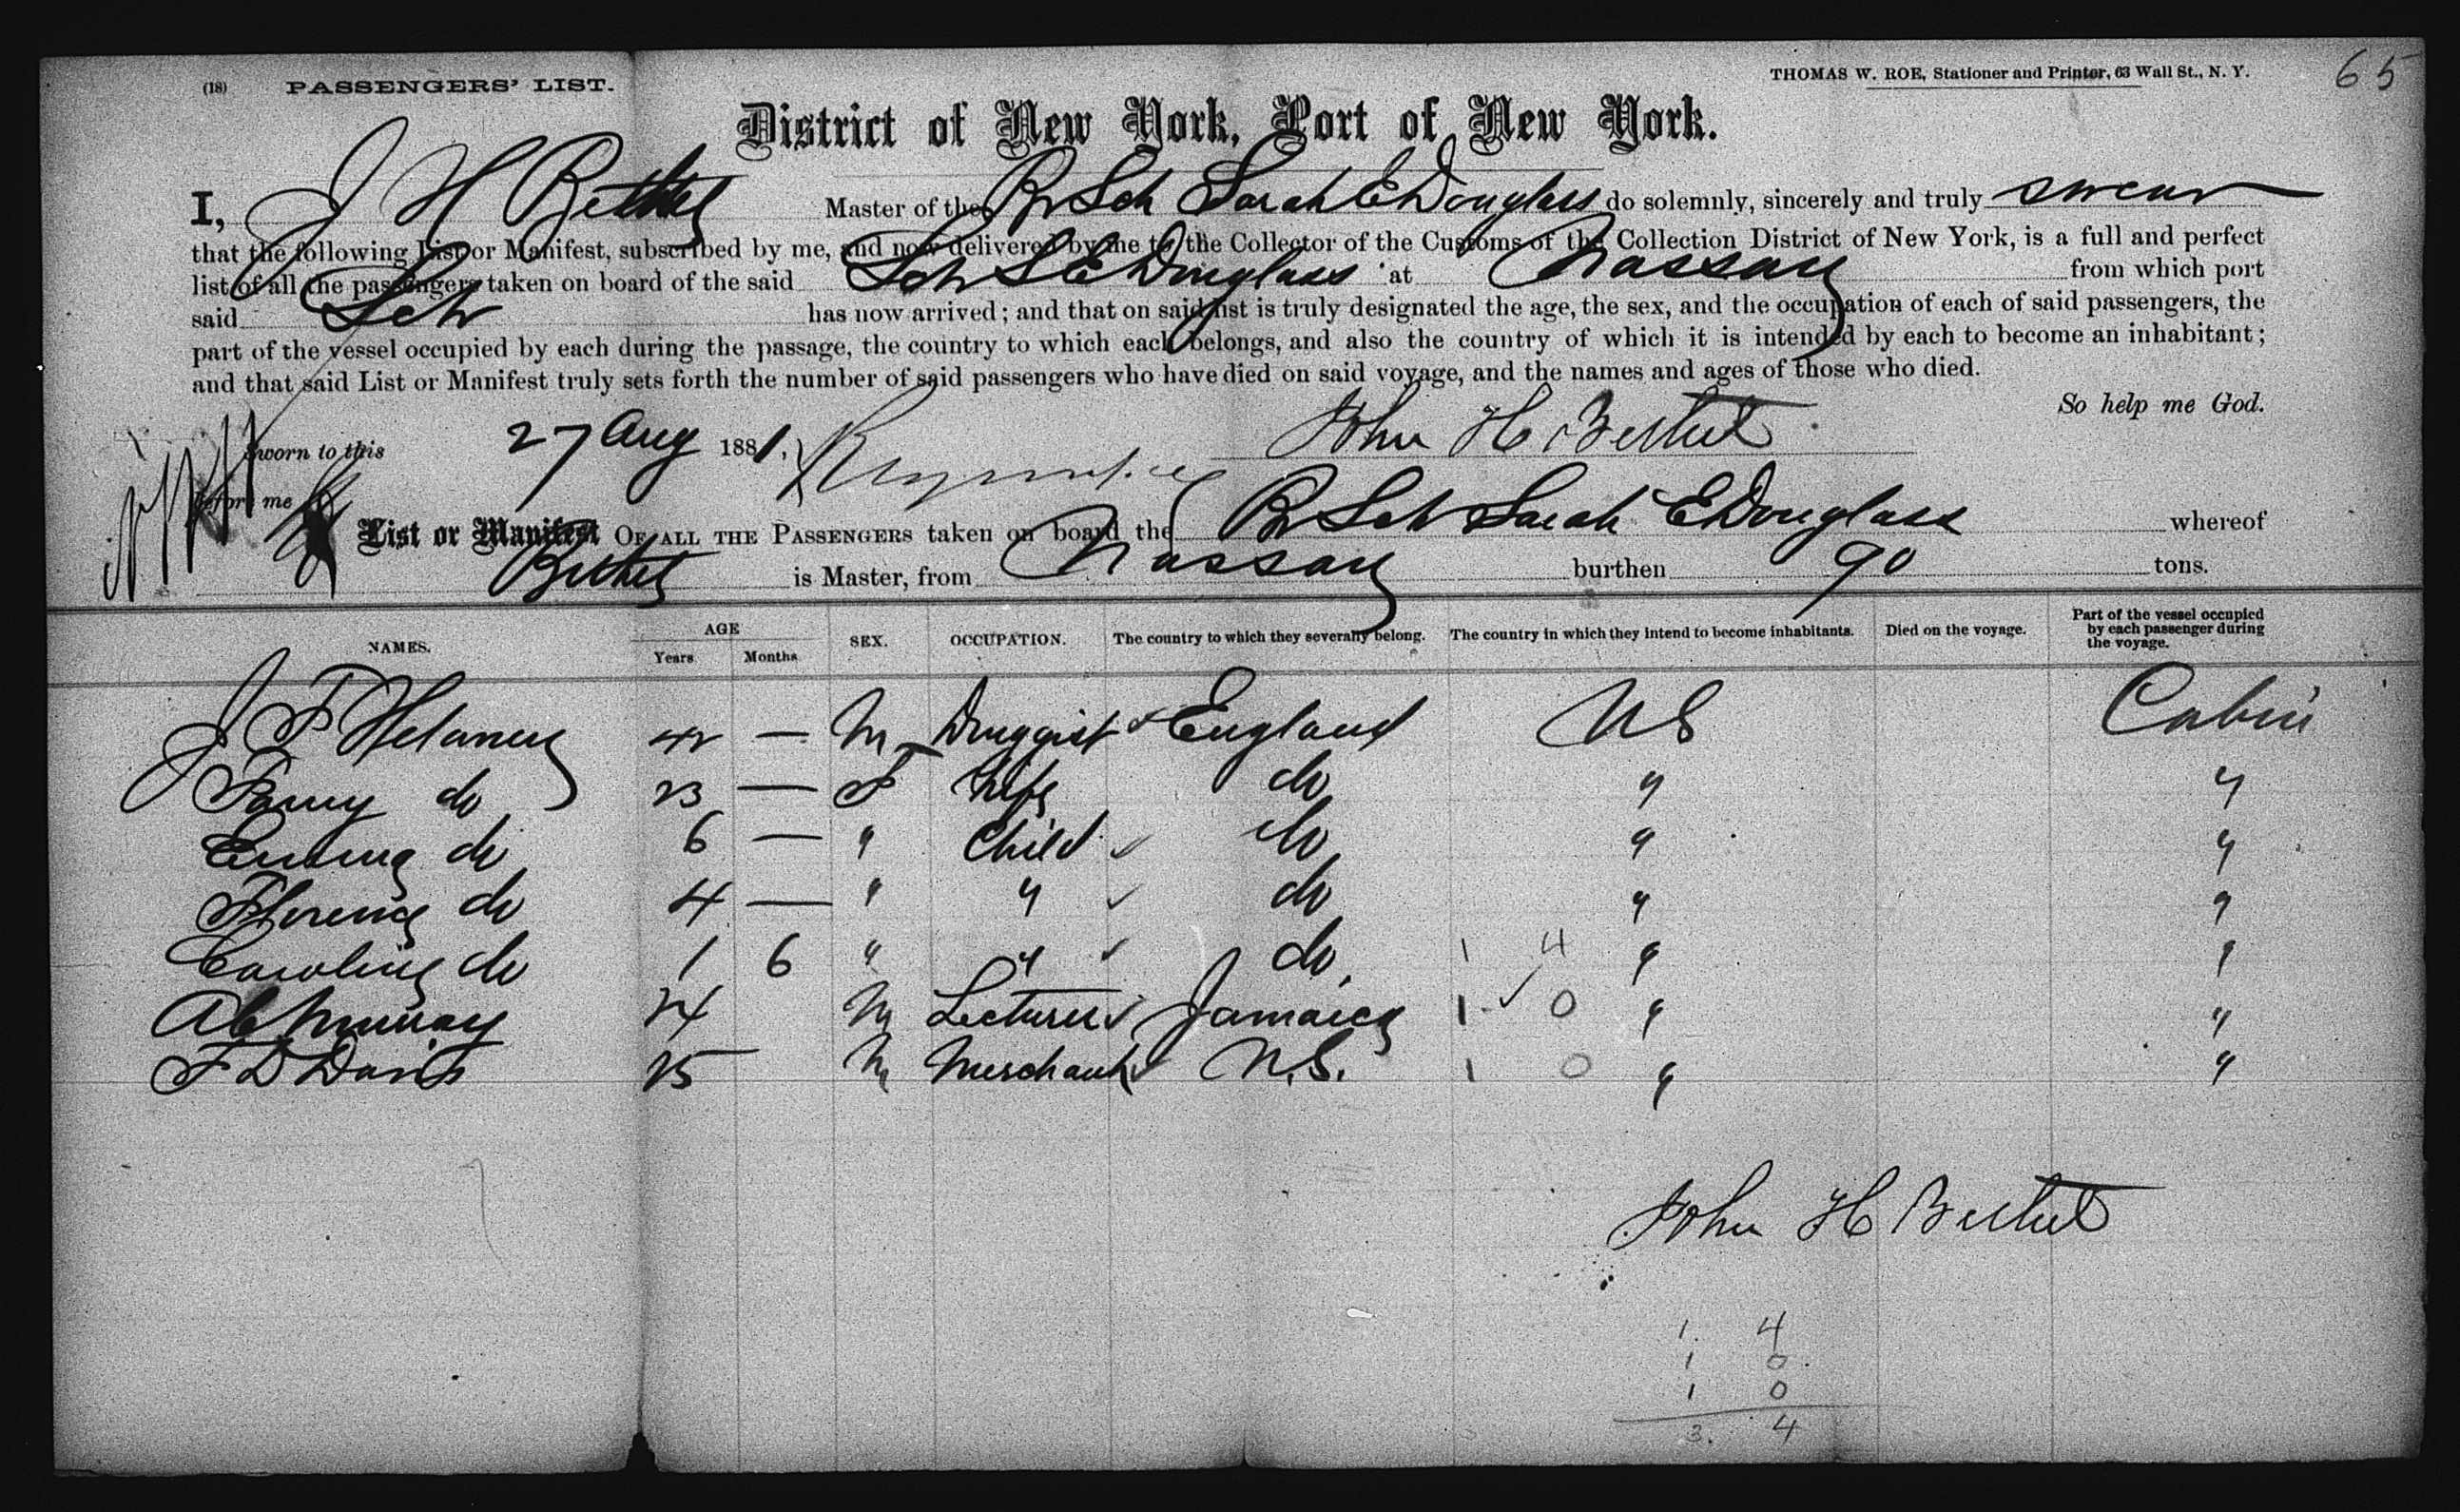 (18) PASSENGERS' LIST.
THOMAS W. ROE, Stationer and Printer, 63 Wall St., N. Y.
65
District of New York, Port of New York.
I, J H Bethel Master of the Br Sch Sarah E Douglass do solemnly, sincerely and truly swear
that the following List or Manifest, subscribed by me, and now delivered by me to the Collector of the Customs of the Collection District of New York, is a full and perfect
list of all the passengers taken on board of the said Sch S E Douglass at Nassau from which port
said Sch has now arrived; and that on said list is truly designated the age, the sex, and the occupation of each of said passengers, the
part of the vessel occupied by each during the passage, the country to which each belongs, and also the country of which it is intended by each to become an inhabitant;
and that said List or Manifest truly sets forth the number of said passengers who have died on said voyage, and the names and ages of those who died.
So help me God.
Sworn to this 27 Aug 1881, John H Bethel
before me
List or Manifest OF ALL THE PASSENGERS taken on board the Br Sch Sarah E Douglass whereof
Bethel is Master, from Nassau burthen 90 tons.
NAMES. AGE Years Months SEX. OCCUPATION. The country to which they severally belong. The country in which they intend to become inhabitants. Died on the voyage. Part of the vessel occupied by each passenger during the voyage.
J F 42 — M Druggist England US Cabin
Fanny do 23 — F Wife do " "
Emma do 6 — " Child do " "
Florence do 4 — " " do " "
Caroline do 1 6 " " do 1 4 " "
A C Murray 24 M Lecturer Jamaica 1 0 " "
F D Davis 25 M Merchant N.S. 1 0 " "
John H Bethel
1 4
1 0
1 0
3. 4